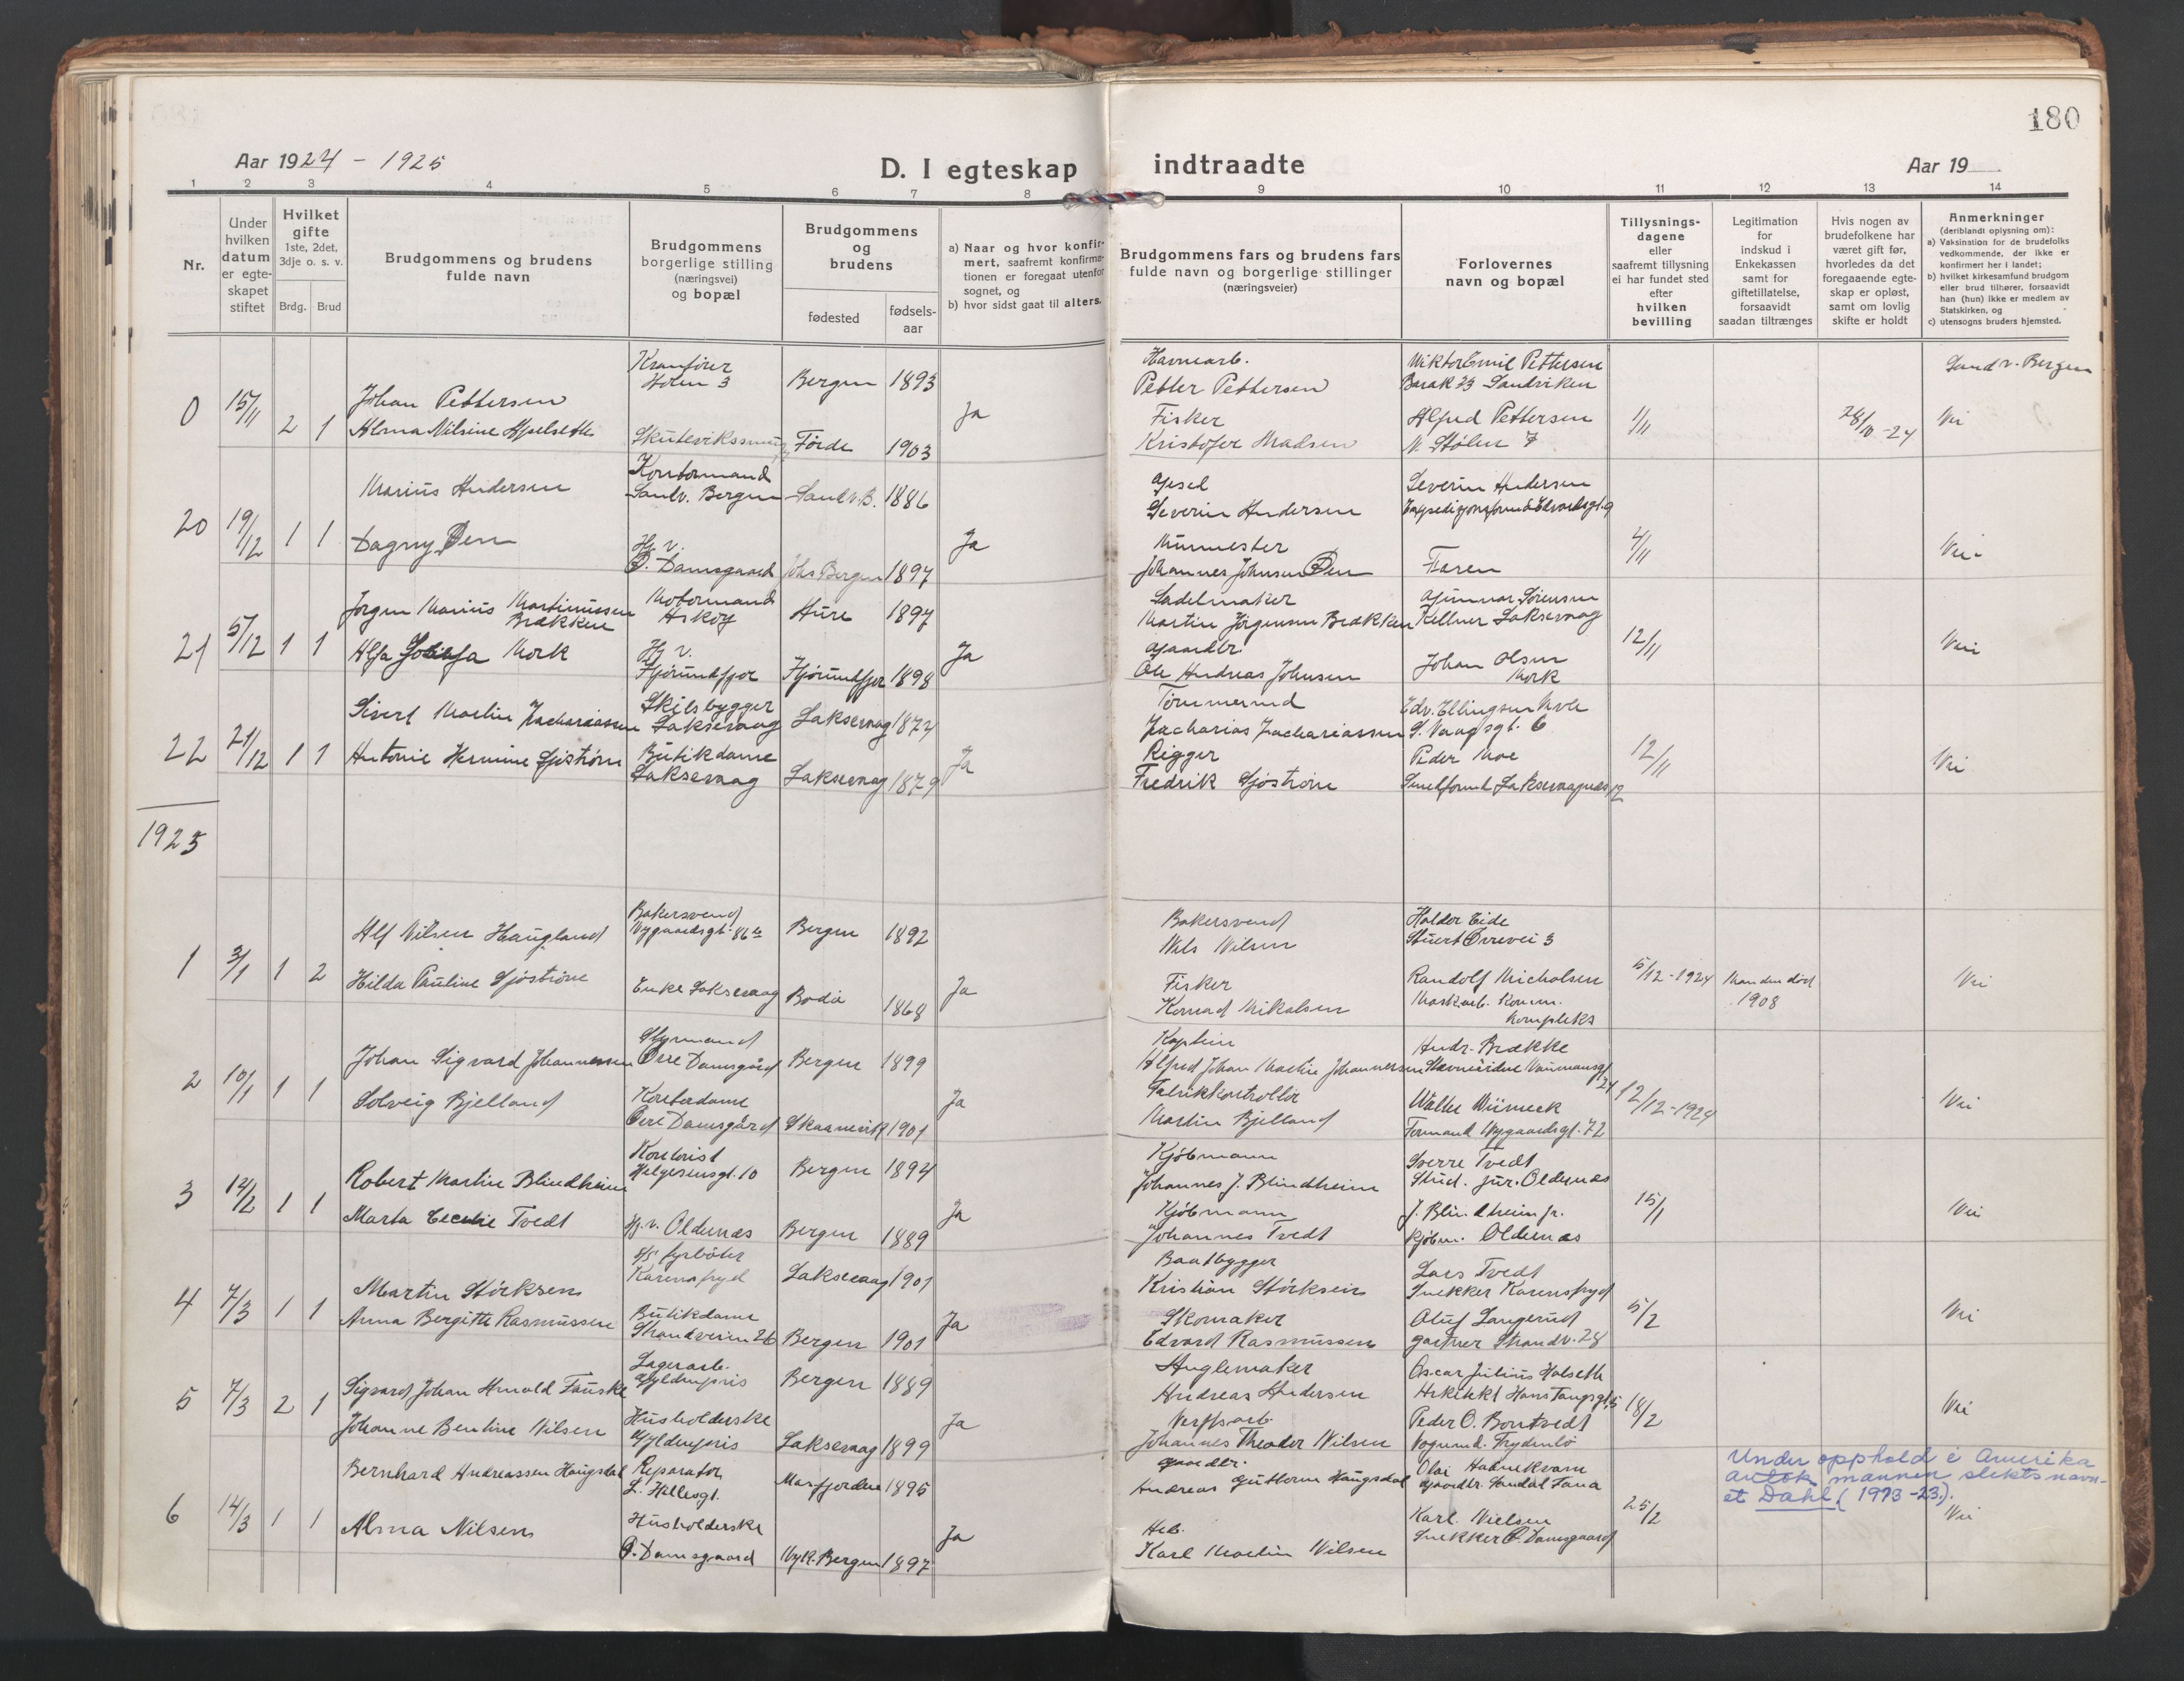 180
Aar 1924 - 1925
D. I egteskap indtraadte
Aar 19
1 2 3 4 5 6 7 8 9 10 11 12 13 14
Nr.
Under hvilken datum er egteskapet stiftet
Hvilket gifte
1ste, 2det, 3dje o. s. v.
Brdg. Brud
Brudgommens og brudens fulde navn
Brudgommens borgerlige stilling (næringsvei) og bopæl
Brudgommens og brudens
fødested
fødsels-aar
a) Naar og hvor konfirmert, saafremt konfirmationen er foregaat utenfor sognet, og
b) hvor sidst gaat til alters.
Brudgommens fars og brudens fars fulde navn og borgerlige stillinger (næringsveier)
Forlovernes navn og bopæl
Tillysningsdagene eller saafremt tillysning ei har fundet sted efter hvilken bevilling
Legitimation for indskud i Enkekassen samt for giftetillatelse, forsaavidt saadan tiltrænges
Hvis nogen av brudefolkene har været gift før, hvorledes da det foregaaende egteskap er opløst, samt om lovlig skifte er holdt
Anmerkninger
(deriblandt oplysning om):
a) Vaksination for de brudefolks vedkommende, der ikke er konfirmert her i landet;
b) hvilket kirkesamfund brudgom eller brud tilhører, forsaavidt han (hun) ikke er medlem av Statskirken, og
c) utensogns bruders hjemsted.
0 15/11 2 1
Johan Pettersen
Kranfører
Holen 3
Bergen 1893
Ja
Havnearb.
Petter Pettersen
Wiktor Emil Pettersen
Barak 23 Sandviken
1/11
28/10-24
Sandv. Bergen
Alma Nilsine
Skuteviks
Førde 1903
Fisker
Kristofer Madsen
Alfred Pettersen
N. Stølen 7
Vei
20 19/12 1 1
Marius Andersen
Kontormand
Sandv. Bergen
Sandv. B. 1886
Ja
Severin Andersen
Severin Andersen
Dagny Øen
Hj. v.
Ø. Damsgaard
Johs Bergen 1897
Murmester
Johannes Johnsen Øen
Faren
4/11
Vei
21 5/12 1 1
Jørgen Marius Martinussen Brækken
Motormand
Askøy
Hure 1897
Ja
Sadelmaker
Martin Jørgensen Brækken
Gunnar Sørensen
Kellner Laksevaag
12/11
Vei
Alfa Mork
Hj v.
Hjørundfjor
Hjørundfjor 1898
Gaardbr.
Ole Andreas Johnsen
Johan Olsen Mork
22 21/12 1 1
Sivert Martin Zachariassen
Skibsbygger
Laksevaag
Laksevaag 1874
Ja
Tømmermd
Zacharias Zachariassen
Edv. Ellingsen
S. Vaagsgt. 6
12/11
Vei
Antonie Hermine Sjøstrøm
Butikdame
Laksevaag
Laksevaag 1879
Rigger
Fredrik Sjøstrøm
Peder Moe
1925
1 3/1 1 2
Alf Nilsen Haugland
Bakersvend
Nygaardsgt. 86
Bergen 1892
Ja
Bakersvend
Nils Nilsen
Halder Eide
3
5/12-1924
Manden død
1908
Vei
Hilda Pauline Sjøstrøm
Enke Laksevaag
Bodø 1868
Fisker
Konrad Mikalsen
Randolf Micholsen
Maskarb. Komm. kompleks
2 10/1 1 1
Johan Sigvard Johannessen
Styrmand
Øvre Damsgård
Bergen 1899
Ja
Kaptein
Alfred Johan Martin Johannessen
Andr. Brække
24
12/12-1924
Vei
Solveig Bjelland
Kontordame
Øvre Damsgård
Skaanevik 1901
Fabrikkontrollør
Martin Bjelland
Formand Nygaardsgt. 72
3 14/2 1 1
Robert Martin Blindheim
Kontorist
Helgesensgt. 10
Bergen 1894
Ja
Kjøbmann
Johannes J. Blindheim
Sverre Tvedt
Stud. jur. Oldernæs
15/1
Vei
Marta Cecelie Tvedt
Hj. v. Oldernæs
Bergen 1889
Kjøbmann
Johannes Tvedt
J. Blindheim jr.
Kjøbm. Oldernæs
4 7/3 1 1
Martin Størksen
fyrbøter
Karensfryd
Laksevaag 1901
Ja
Baatbygger
Kristian Størksen
Lars Tvedt
Snekker Karensfryd
5/2
Vei
Anna Bergitte Rasmussen
Butikdame
Strandveien 26
Bergen 1901
Skomaker
Edvard Rasmussen
Oluf Langerud
gartner Strandv. 28
5 7/3 2 1
Sigvard Johan Arnold Fauske
Lagerarb.
Gyldenpris
Bergen 1889
Ja
Andreas Andersen
Oscar Julius Halseth
Arkitekt Hans Tangsgt. 5
18/2
Vei
Johanne Bentine Nilsen
Husholderske
Gyldenpris
Laksevaag 1899
Verftsarb.
Johannes Theodor Nilsen
Peder O. Bontvedt
Vognmd. Frydenbø
6 14/3 1 1
Bernhard Andreassen Haugsdal
Reparatør
L. Hillesgt.
Masfjorden 1895
Ja
Gaardbr.
Andreas Guttorm Haugsdal
Olai Hannekvam
Gaardbr. Sandal Fana
25/2
Under opphold i Amerika
antok mannen slektsnavn-
et Dahl. (1973-23.).
Vei
Alma Nilsen
Husholderske
Ø. Damsgaard
Nyk. Bergen 1897
Arb.
Karl Martin Nilsen
Karl Nielsen
Snekker Ø. Damsgaard